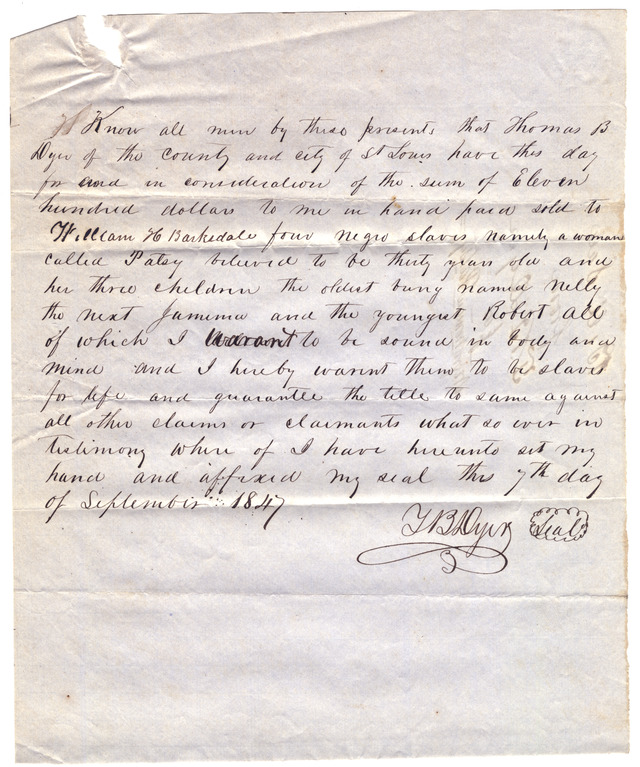 Know all men by these presents that Thomas B
Dyer of the county and city of St Louis have this day
for and in consideration of the sum of Eleven
hundred dollars to me in hand paid sold to
William H Barksdale four negro slaves namely a woman
called Patsy believed to be thirty years old and
her three children the oldest being named Nelly
the next Jamima and the youngest Robert all
of which I warant to be sound in body and
mind and I hereby warint them to be slaves
for life and guarantee the title to same against
all other claims or claimants what so ever in
testimony where of I have hereunto set my
hand and affixed my seal this 7th day
of September 1847
T B Dyer Seal